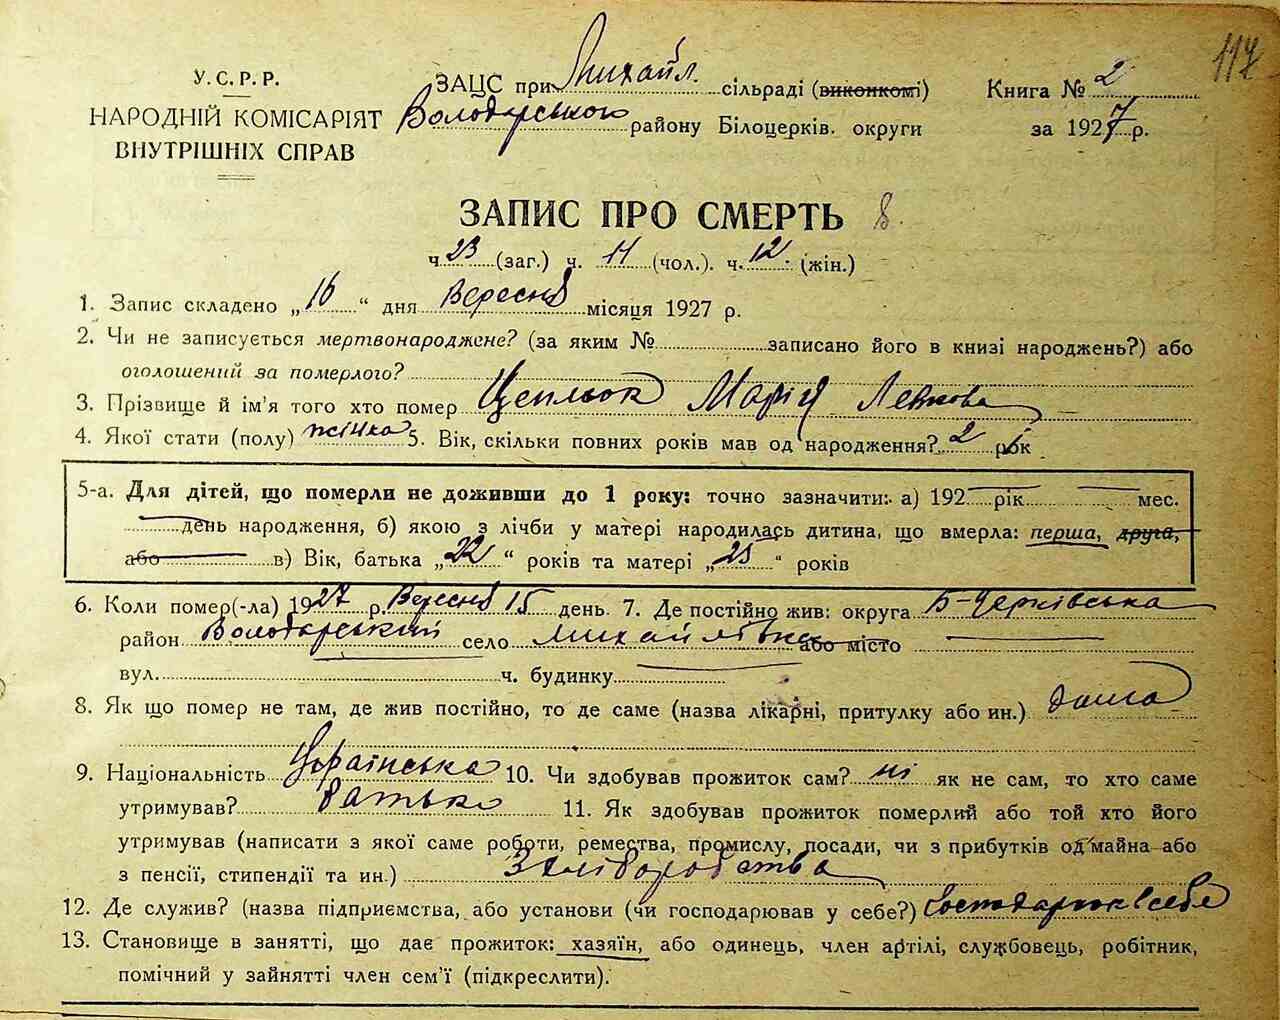 117
У.С.Р.Р.
НАРОДНІЙ КОМІСАРІЯТ
ВНУТРІШНІХ СПРАВ
ЗАЦС при Михайл. сільраді (виконкомі)
Володарського району Білоцерків. округи
Книга № 2
за 1927 р.
ЗАПИС ПРО СМЕРТЬ 8.
ч. 23 (заг.) ч. 11 (чол.). ч. 12 (жін.)
1. Запис складено „16“ дня Вересня місяця 1927 р.
2. Чи не записується мертвонароджене? (за яким № записано його в книзі народжень?) або
оголошений за померлого?
3. Прізвище й ім'я того хто помер Цепльок Марія Левкова
4. Якої стати (полу) жінка 5. Вік, скільки повних років мав од народження? 2 рок
5-а. Для дітей, що померли не доживши до 1 року: точно зазначити: а) 192 рік мес.
день народження, б) якою з лічби у матері народилась дитина, що вмерла: перша, друга,
або в) Вік, батька „22“ років та матері „25“ років
6. Коли помер(-ла) 1927 р. Вересня 15 день. 7. Де постійно жив: округа Б-Черківська
район Володарський село Михайлівка або місто
вул. ч. будинку
8. Як що помер не там, де жив постійно, то де саме (назва лікарні, притулку або ин.) дома
9. Національність Українська 10. Чи здобував прожиток сам? ні як не сам, то хто саме
утримував? батько 11. Як здобував прожиток померлий або той хто його
утримував (написати з якої саме роботи, ремества, промислу, посади, чи з прибутків од майна або
з пенсії, стипендії та ин.) З хліборобства
12. Де служив? (назва підприємства, або установи (чи господарював у себе?) Господарював в себе
13. Становище в занятті, що дає прожиток: хазяїн, або одинець, член артілі, службовець, робітник,
помічний у зайнятті член сем'ї (підкреслити).